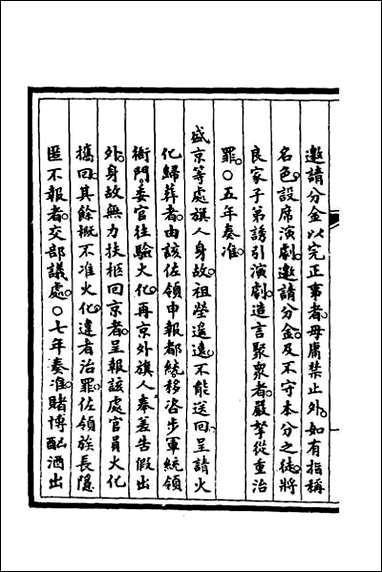 邀請分金以完正事者毋庸禁止外如有指稱
名色設席演劇邀請分金及不守本分之徒將
良家子弟誘引演劇造言聚衆者嚴拏從重治
罪○五年奏准
盛京等處旗人身故祖塋遥遠不能送回呈請火
化歸葬者由該佐領申報都統移咨步軍統領
衙門委官往驗火化再京外旗人奉差告假出
外身故無力扶柩回京者呈報該處官員火化
擕回其餘概不准火化違者治罪佐領族長隱
匿不報者交部議處○七年奏准賭博酗酒出